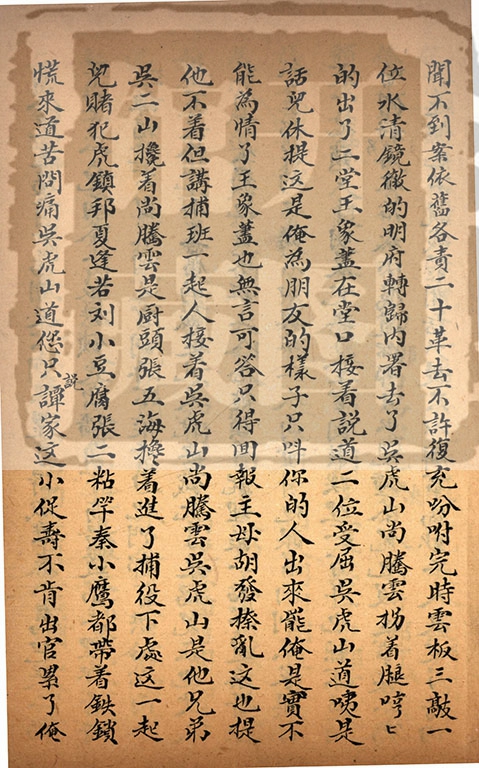 聞不到案依舊各責二十革去不許復充吩咐完時雲板三敲一
位水清鏡徹的明府轉歸內署去了吳虎山尚騰雲拐着腿哼〻
的出了二堂王象藎在堂口接着說道二位受屈吳虎山道咦是
話兒休提這是俺為朋友的樣子只呌你的人出來罷俺是實不
能為情了王象藎也無言可答只得回報主母胡發撩亂這也提
他不着但講捕班一起人接着吳虎山尚騰雲吳虎山是他兄弟
吳二山攙着尚騰雲是厨頭張五海攙着進了捕役下處這一起
兒賭犯虎鎮邦夏逢若刘小豆腐張二粘竿秦小鷹都帶着鉄鎖
慌來道苦問痛吳虎山道您只說譚家这小促壽不肯出官累了俺